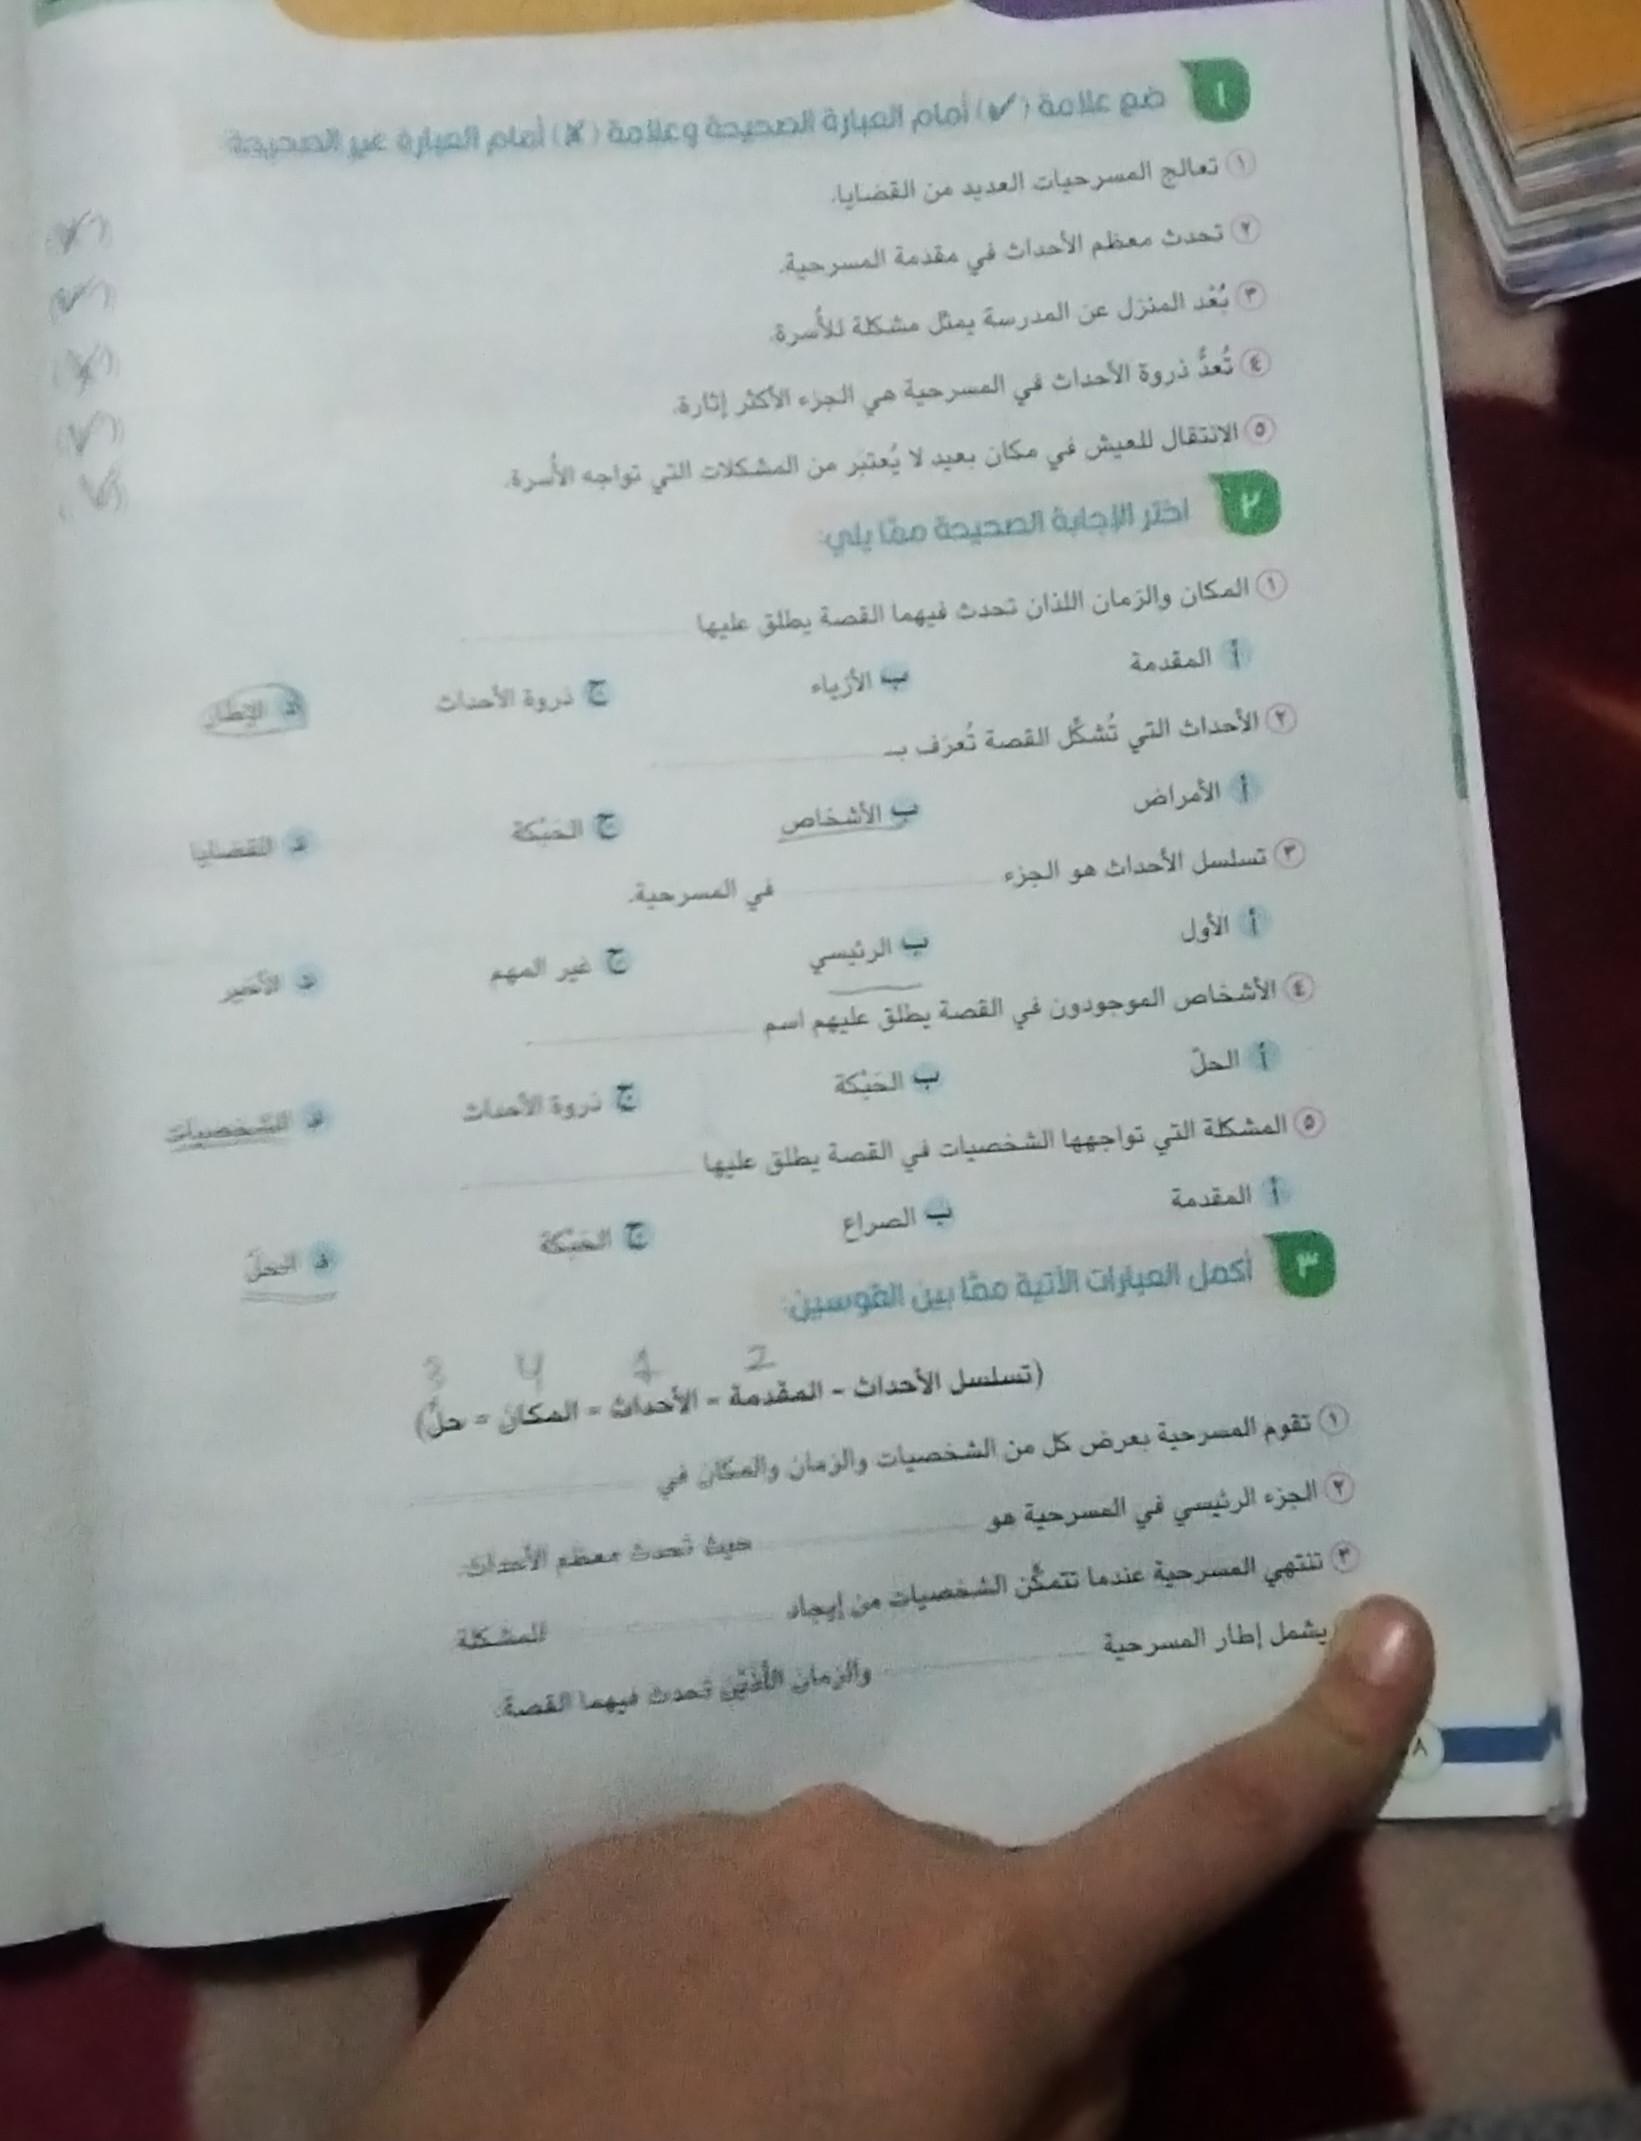 ١
ضع علامة (✓) أمام العبارة الصحيحة وعلامة (✗) أمام العبارة غير الصحيحة:
١ تعالج المسرحيات العديد من القضايا.
٢ تحدث معظم الأحداث في مقدمة المسرحية.
٣ بُعْد المنزل عن المدرسة يمثل مشكلة للأسرة.
٤ تُعدُّ ذروة الأحداث في المسرحية هي الجزء الأكثر إثارة.
٥ الانتقال للعيش في مكان بعيد لا يُعتبَر من المشكلات التي تواجه الأسرة.
٢
اختر الإجابة الصحيحة ممَّا يلي:
١ المكان والزمان اللذان تحدث فيهما القصة يطلق عليها
أ المقدمة ب الأزياء ج ذروة الأحداث د الإطار
٢ الأحداث التي تُشكِّل القصة تُعرَف بـ
أ الأمراض ب الأشخاص ج الحَبْكة د القضايا
٣ تسلسل الأحداث هو الجزء في المسرحية.
أ الأول ب الرئيسي ج غير المهم د الأخير
٤ الأشخاص الموجودون في القصة يطلق عليهم اسم
أ الحلّ ب الحَبْكة ج ذروة الأحداث د الشخصيات
٥ المشكلة التي تواجهها الشخصيات في القصة يطلق عليها
أ المقدمة ب الصراع ج الحَبْكة د الحلّ
٣
أكمل العبارات الآتية ممَّا بين القوسين:
3 4 1 2
(تسلسل الأحداث - المقدمة - الأحداث - المكان - حلّ)
١ تقوم المسرحية بعرض كل من الشخصيات والزمان والمكان في
٢ الجزء الرئيسي في المسرحية هو حيث تحدث معظم الأحداث.
٣ تنتهي المسرحية عندما تتمكَّن الشخصيات من إيجاد للمشكلة
يشمل إطار المسرحية والزمان اللَّذَيْن تحدث فيهما القصة.